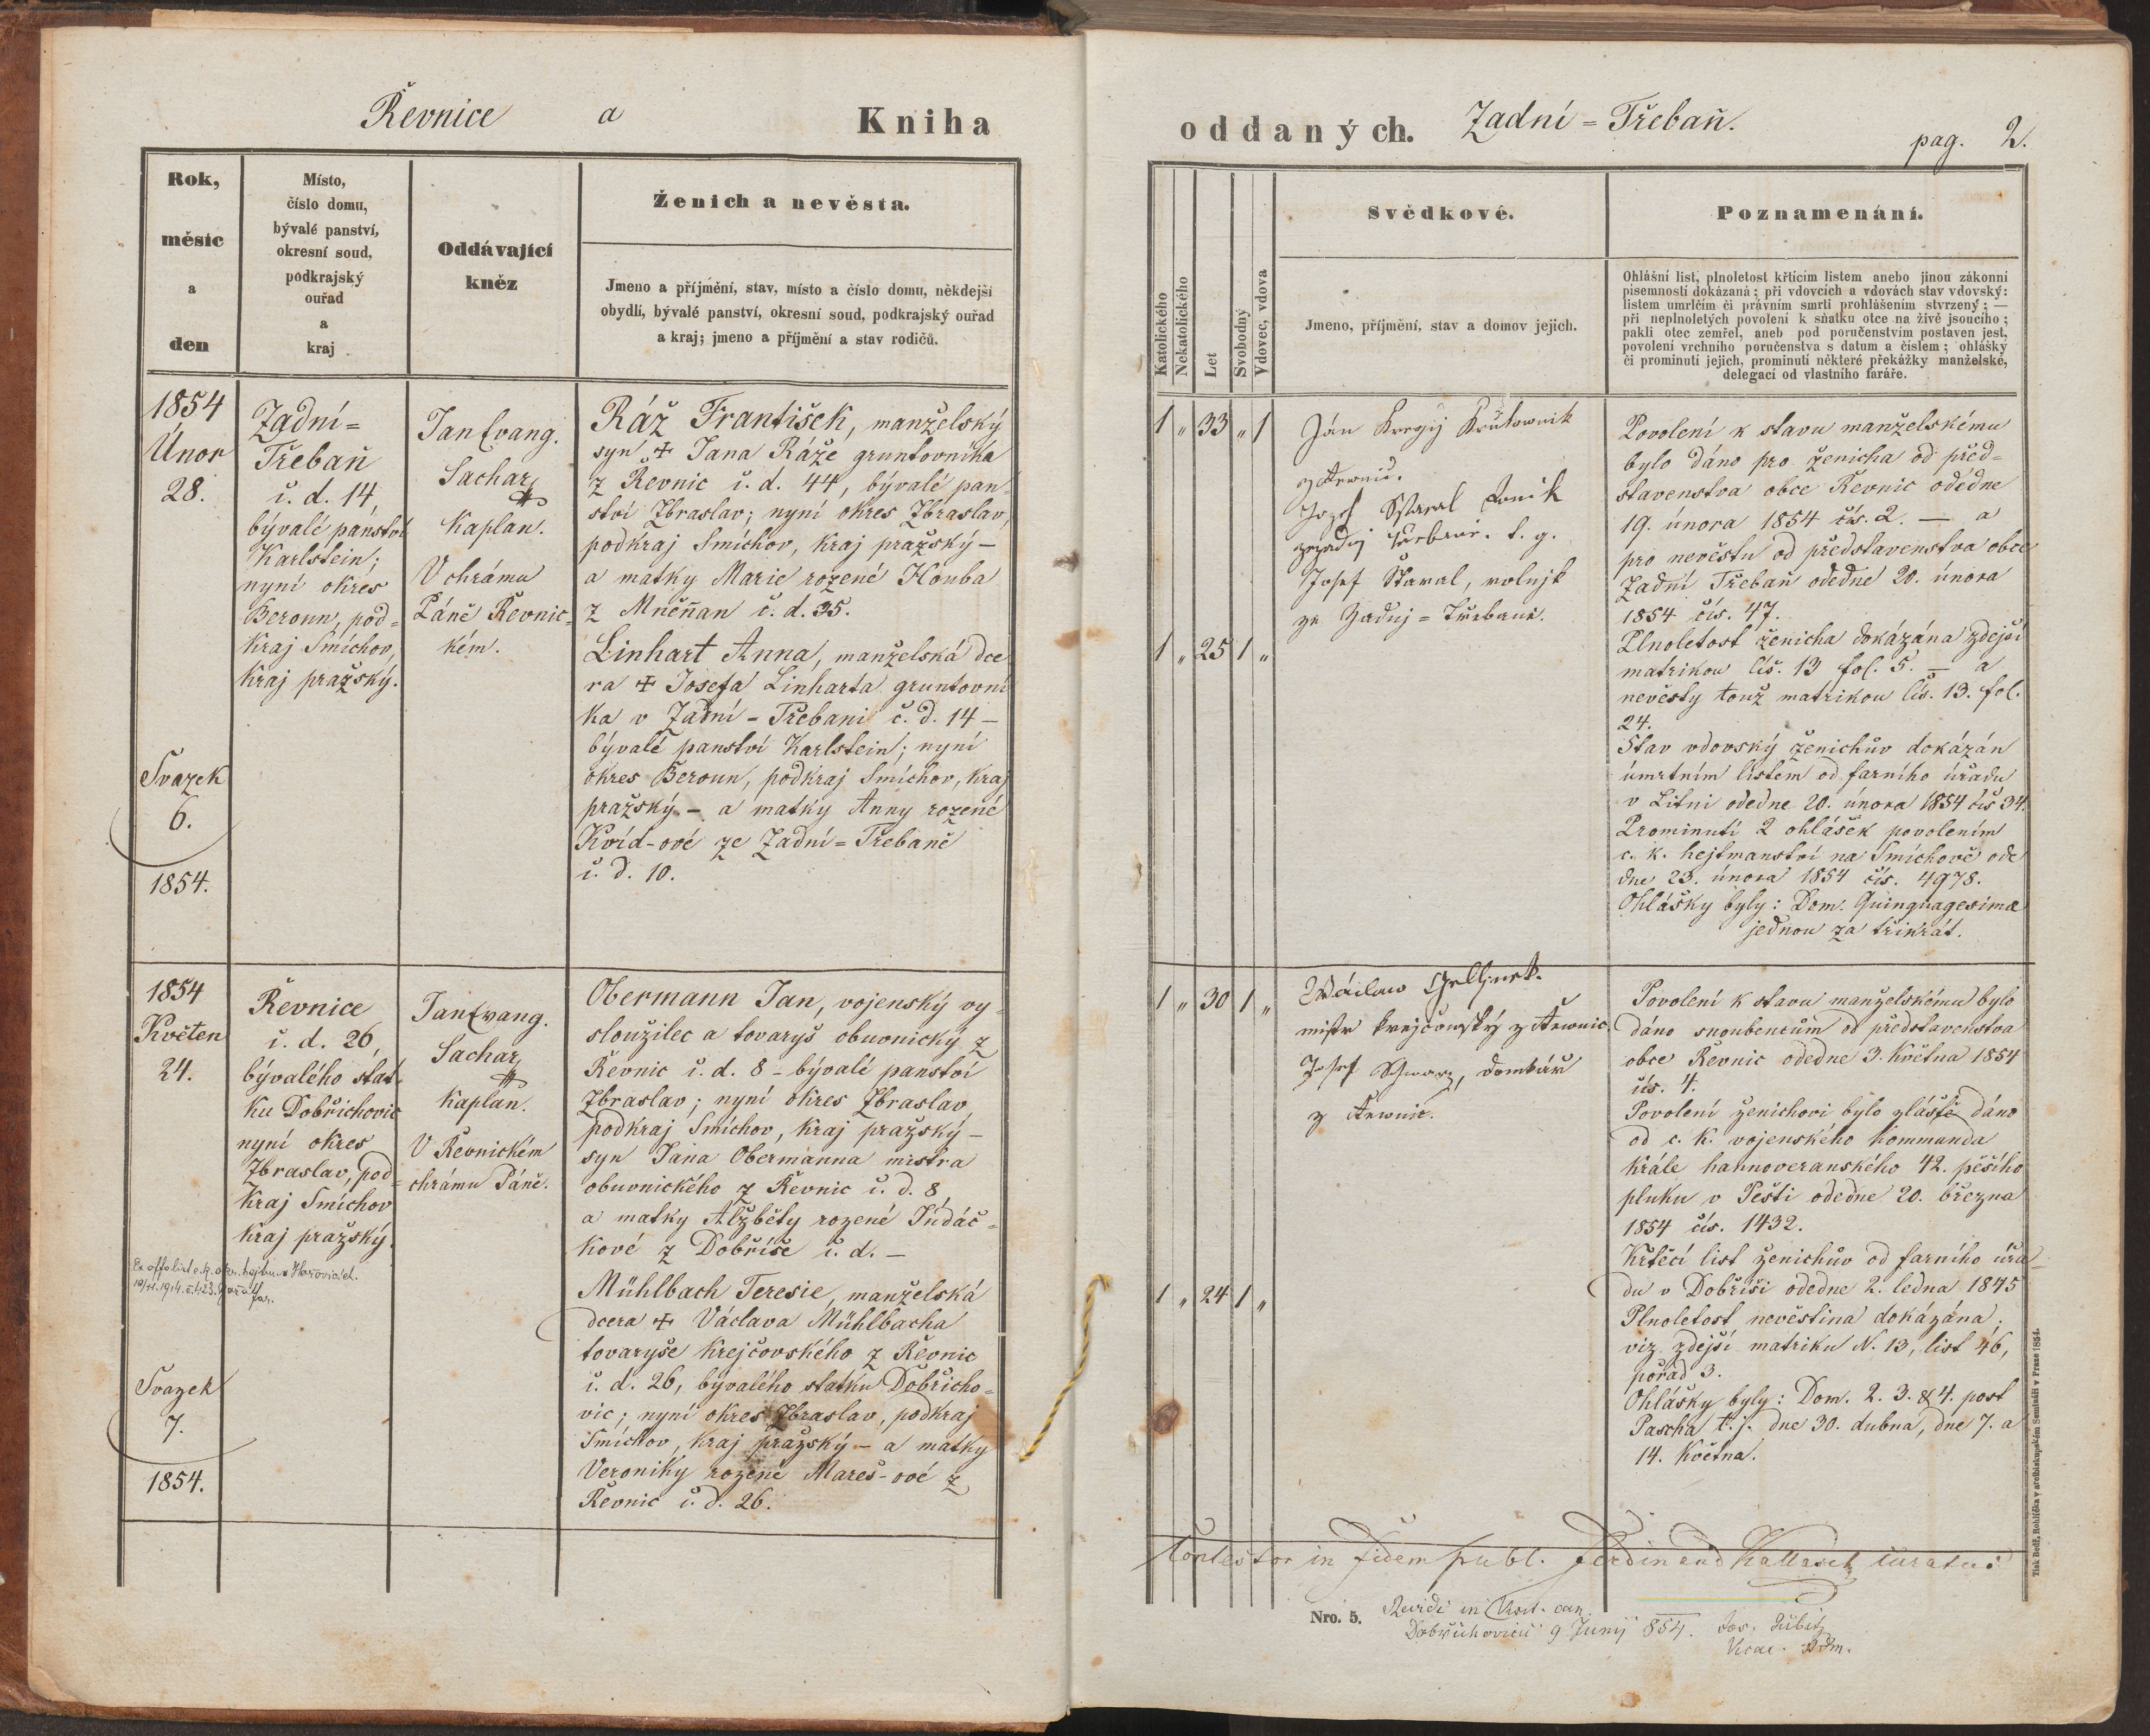 Řevnice a Kniha
Rok,
měsíc
a
den
Místo,
číslo domu,
bývalé panství,
okresní soud,
podkrajský
ouřad
a
kraj
Oddávající
kněz
Ženich a nevěsta.
Jmeno a příjmění, stav, místo a číslo domu, někdejší
obydlí, bývalé panství, okresní soud, podkrajský ouřad
a kraj; jmeno a příjmění a stav rodičů.
1854
Únor
28.
Svazek
6.
1854.
Zadní=
Třebaň
č. d. 14,
bývalé panství
Karlstein;
nyní okres
Beroun, pod=
kraj Smíchov,
kraj pražský.
Jan Evang.
Sachar,
Kaplan.
V chrámu
Páně Řevnic=
kém.
Ráž František, manželský
syn ✠ Jana Ráže gruntovníka
z Řevnic č. d. 44, bývalé pan=
ství Zbraslav; nyní okres Zbraslav,
podkraj Smíchov, kraj pražský –
a matky Marie rozené Houba
z Mněňan č. d. 35.
Linhart Anna, manželská dce
ra ✠ Josefa Linharta gruntovní
ka v Zadní - Třebani č. d. 14 –
bývalé panství Karlstein; nyní
okres Beroun, podkraj Smíchov, kraj
pražský – a matky Anny rozené
Kvíd-ové ze Zadní = Třebaně
č. d. 10.
1854
Květen
24.
Svazek
7.
1854.
Řevnice
č. d. 26,
bývalého stat=
ku Dobřichovic
nyní okres
Zbraslav, pod=
kraj Smíchov
kraj pražský.
Jan Evang.
Sachar,
Kaplan.
V Řevnickém
chrámu Páně.
Obermann Jan, vojenský vy=
sloužilec a tovaryš obuvnický z
Řevnic č. d. 8 – bývalé panství
Zbraslav; nyní okres Zbraslav
podkraj Smíchov, kraj pražský –
syn Jana Obermanna mistra
obuvnického z Řevnic č. d. 8,
a matky Alžběty rozené Jndáč=
kové z Dobříše č. d. –
Mühlbach Teresie, manželská
dcera ✠ Václava Mühlbacha
tovaryše krejčovského z Řevnic
č. d. 26, bývalého statku Dobřicho=
vic; nyní okres Zbraslav, podkraj
Smíchov, kraj pražský – a matky
Veroniky rozené Mareš-ové z
Řevnic č. d. 26.
oddaných. Zadní = Třebaň.
pag. 2.
Katolického
Nekatolického
Let
Svobodný
Vdovec, vdova
Svědkové.
Jmeno, příjmění, stav a domov jejich.
Poznamenání.
Ohlášní list, plnoletost křtícím listem anebo jinou zákonní
písemností dokázaná; při vdovcích a vdovách stav vdovský:
listem umrlčím či právním smrti prohlášením stvrzený; —
při neplnoletých povolení k sňatku otce na živě jsoucího;
pakli otec zemřel, aneb pod poručenstvím postaven jest,
povolení vrchního poručenstva s datum a číslem; ohlášky
či prominutí jejich, prominutí některé překážky manželské,
delegací od vlastního faráře.
1 " 33 " 1
1 " 25 1 "
Ján
Josef
Josef
ze Zadnj = Třebaně.
Povolení k stavu manželskému
bylo dáno pro ženicha od před=
stavenstva obce Řevnic odedne
19. února 1854 čís. 2. — a
pro nevěstu od představenstva obce
Zadní Třebaň odedne 20. února
1854 čís. 47.
Plnoletost ženicha dokázána zdejší
matrikou čís. 13 fol. 5. — a
nevěsty touž matrikou čís. 13. fol.
24.
Stav vdovský ženichův dokázán
úmrtním listem od farního úřadu
v Litni odedne 20. února 1854 čís 34.
Prominutí 2 ohlášek povolením
c. k. hejtmanství na Smíchově ode
dne 23. února 1854 čís. 4978.
Ohlášky byly: Dom. Quinquagesima
jednou za třikrát.
1 " 30 1 "
1 " 24 1 "
Wáclaw
mistr krejčowský z Řewnic
Josef Schwarz, domkář
z Řewnic.
Povolení k stavu manželskému bylo
dáno snoubencům od představenstva
obce Řevnic odedne 3. května 1854
čís. 4.
Povolení ženichovi bylo zláště dáno
od c. k. vojenského kommanda
krále hannoveranského 42. pěšího
pluku v Pešti odedne 20. března
1854 čís. 1432.
Křtěcí list ženichův od farního úřa=
du v Dobříši odedne 2. ledna 1845
Plnoletost nevěstina dokázána,
viz zdejší matriku N. 13, list 46,
pořad 3.
Ohlášky byly: Dom. 2. 3. & 4. post
Pascha t. j. dne 30. dubna, dne 7. a
14. května.
Contestor in fidem publ. Ferdinand Kallasch curatus
Nro. 5.
Revidi in Visit. can.
Dobřichovicii 9 Junij 854.
Tisk Bedř. Rohlíčka v arcibiskupském Semináři v Praze 1854.